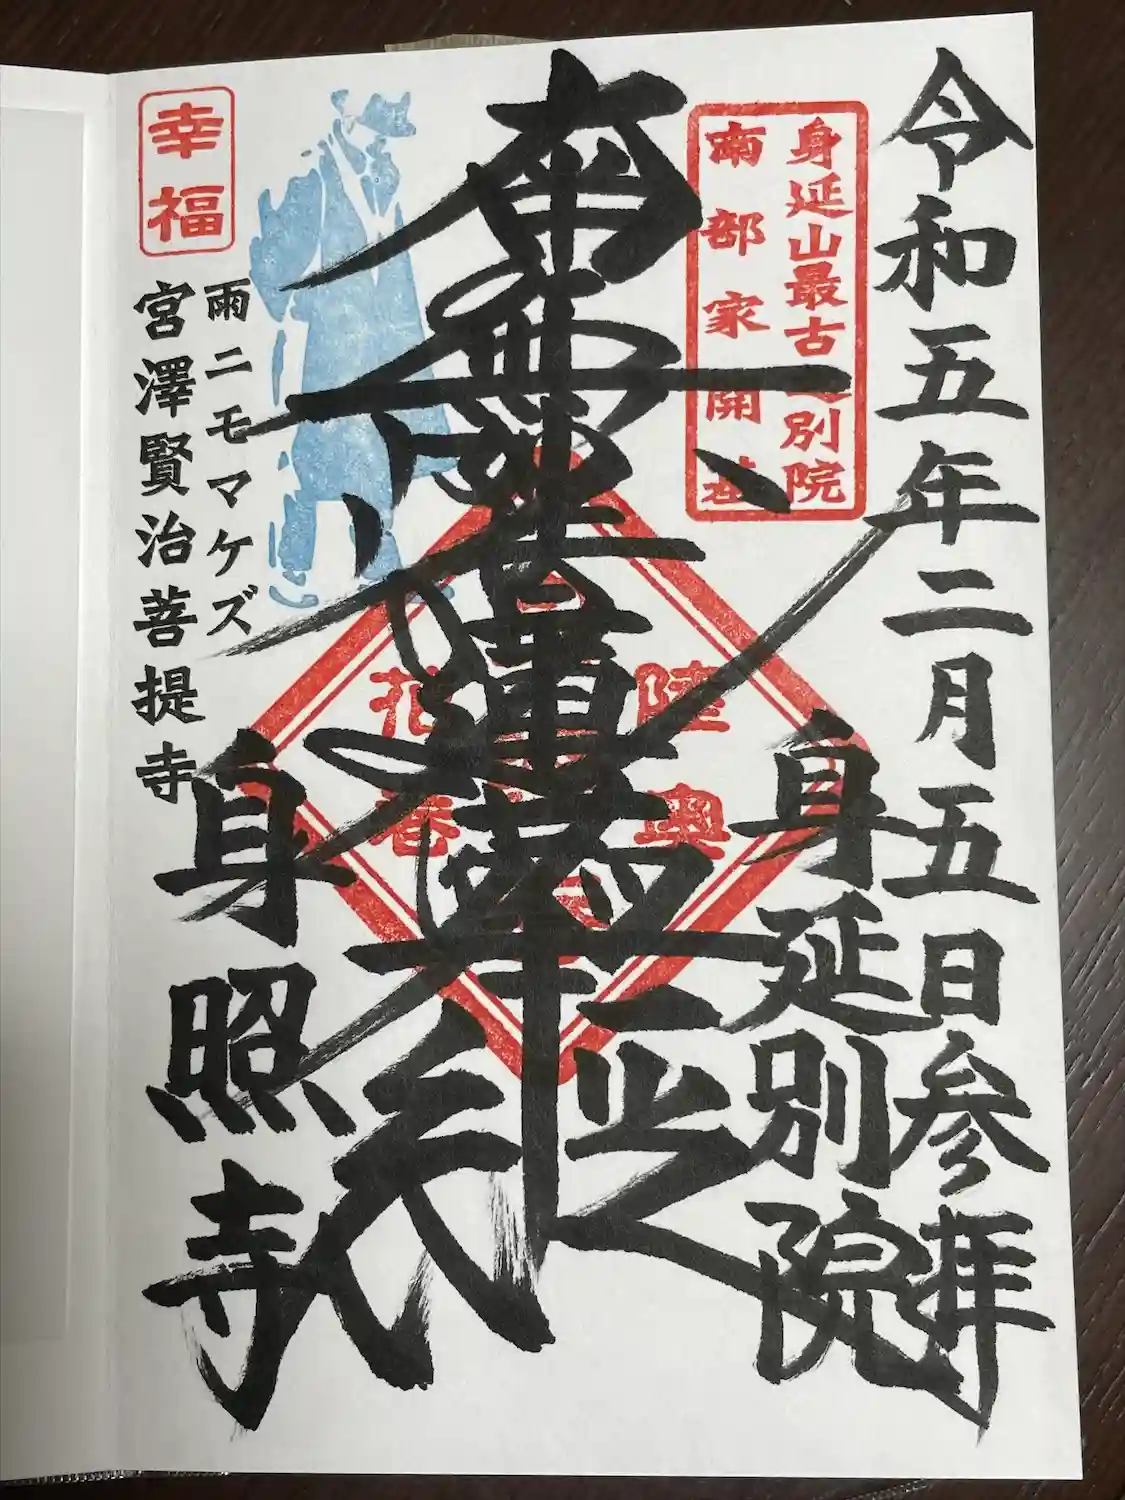 令和五年二月五日参拝
身延山最古
別院
南部家開基
身延別院
南無妙法蓮華経
陸奥
花巻
幸福
雨ニモマケズ
宮澤賢治菩提寺
身照寺